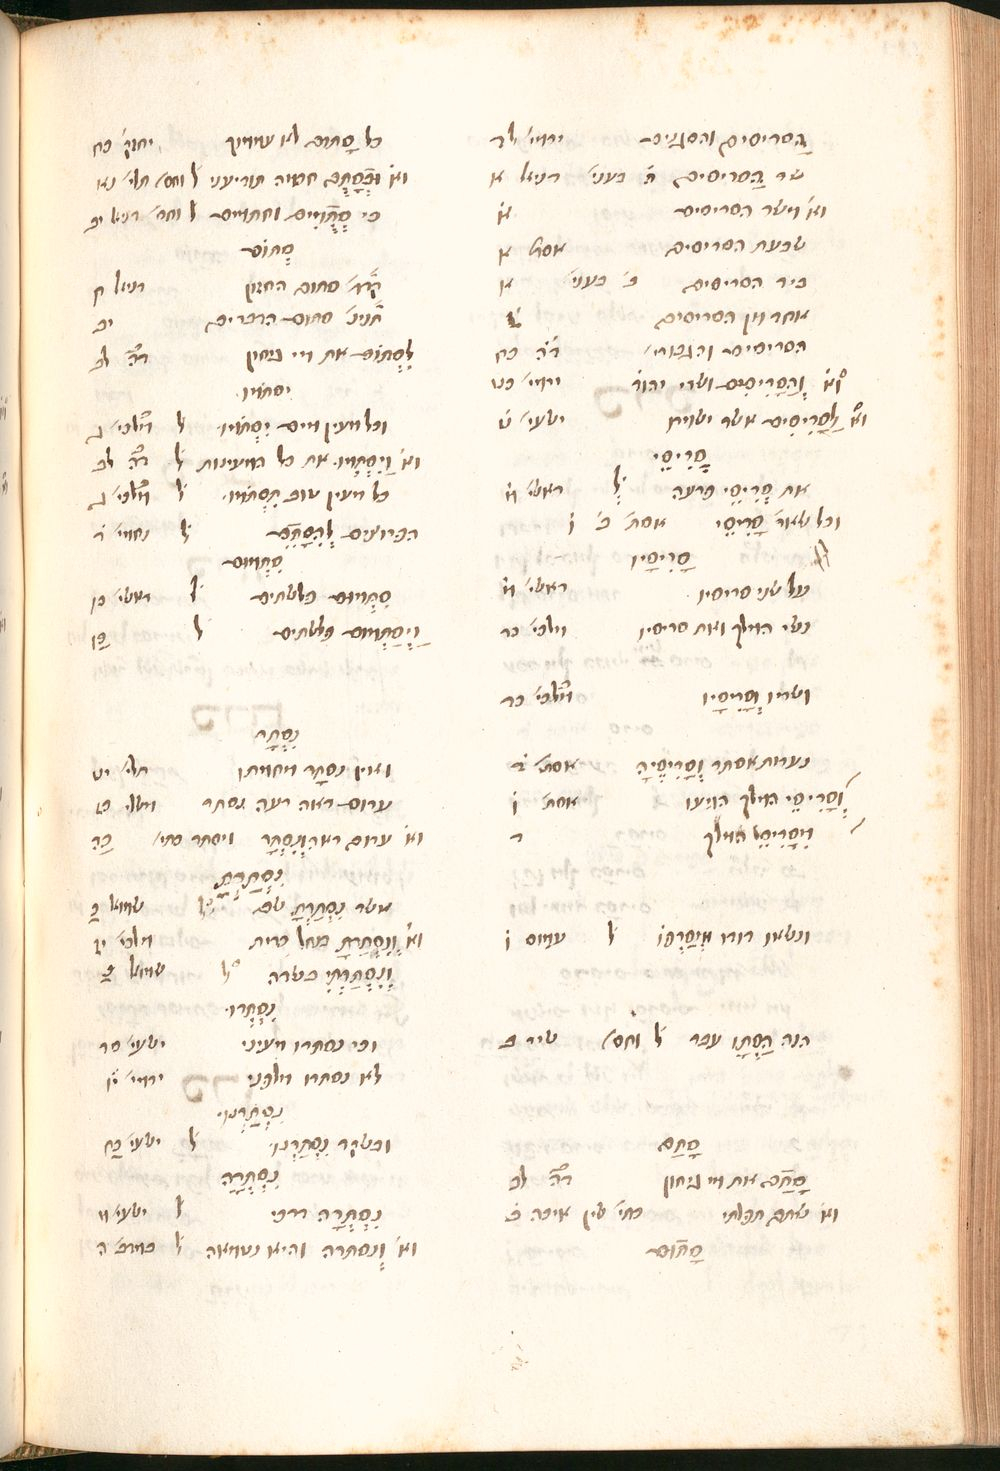 הסריסים והסגנים ירמי׳ לד
שר הסריסים ה֗ בעני׳ דניאל א
וא֗ וישר הסריסים א֗
שבעת הסריסים אסת׳ א
ביד הסריסים ב׳ בעני׳ א
אחד מן הסריסים
הסריסים והגבורי׳ ד״ה כח
וא֗ וְהַסָרִיסִים ושרי יהוד׳ ירמי׳ כט
וא֗ לַסָרִיסִים אשר ישמרו ישעי׳ נו
סָרִיסֵי
את סְרִיסֵי פרעה ל֗ ראשי׳ מ֗
וכל שאר סָרִיסֵי אסת׳ ב׳ ו
סָרִיסָיו
על שני סריסיו ראשי׳ מ֗
נשי המלך ואת סריסיו מלכי׳ כד
ושריו וְסָרִיסָיו מלכי׳ כד
נערות אסתר וְסָרִיסֶיהָ אסת׳ ד֗
וְסָרִיסֵי המלך הגיעו אסת׳ ו֗
מִסָרִיסֵי המלך ד
ונשאו דודו וּמְסָרְפוֹ ל֗ עמוס ו֗
הנה הַסְתָו עבר ל֗ וחס׳ שיר ב
סָתַם
סָתַם את מי גיחון ד״ה לב
וא֗ שתם תפלתי כתי׳ שין איכה ג֗
סָתוּם
כל סָתוּם לא עממוך יחזק׳ כח
וא֗ וּבְסָתֻם חכמה תודיעני ל֗ וחס׳ תלי׳ נא
כי סְתֻמִים וחתומים ל֗ וחס׳ דניאל יב
סְתוֹם
סתום החזון דניאל ח
תניינ׳ סתום הדברים יב
לִסְתוֹם את מי גיחון ד״ה לב
יסתמו
וכל מעין מים יִסְתֹמוּ ל֗ מלכי׳ ג
וא֗ וַיִסְתְמוּ את כל המעינות ל֗ ד״ה לב
כל מעין טוב תִסְתֹמוּ ל֗ מלכי׳ ג
הפרוצים לְהִסָתֵם ל֗ נחמי׳ ד֗
סִתְמוּם
סִתְמוּם פלשתים ל֗ ראשי׳ כו
וַיְסַתְמוּם פלשתים ל֗ כו
נִסְתָר
ואין נסתר מחמתו תלי׳ יט
ערום ראה רעה ונסתר משלי כז
וא֗ ערום ראה וְנִסְתָר ויסתר כתי׳ כב
נִסְתַרְתָ
אשר נִסְתַרְתָ שם ל֗ שמואל כ
וא֗ וְנִסְתַרְתָ בנחל כרית מלכי׳ יז
וְנִסְתַרְתִי בשדה ל֗ שמואל כ
נִסְתְרוּ
וכי נסתרו מעיני ישעי׳ סה
לא נסתרו מלפני ירמי׳ יו
נִסְתַרְנוּ
ובשקר נִסְתַרְנוּ ל֗ ישעי׳ כח
נִסְתְרָה
נִסְתְרָה דרכי ל֗ ישעי׳ מ
וא֗ וְנסתרה והיא נטמאה ל֗ במדב׳ ה